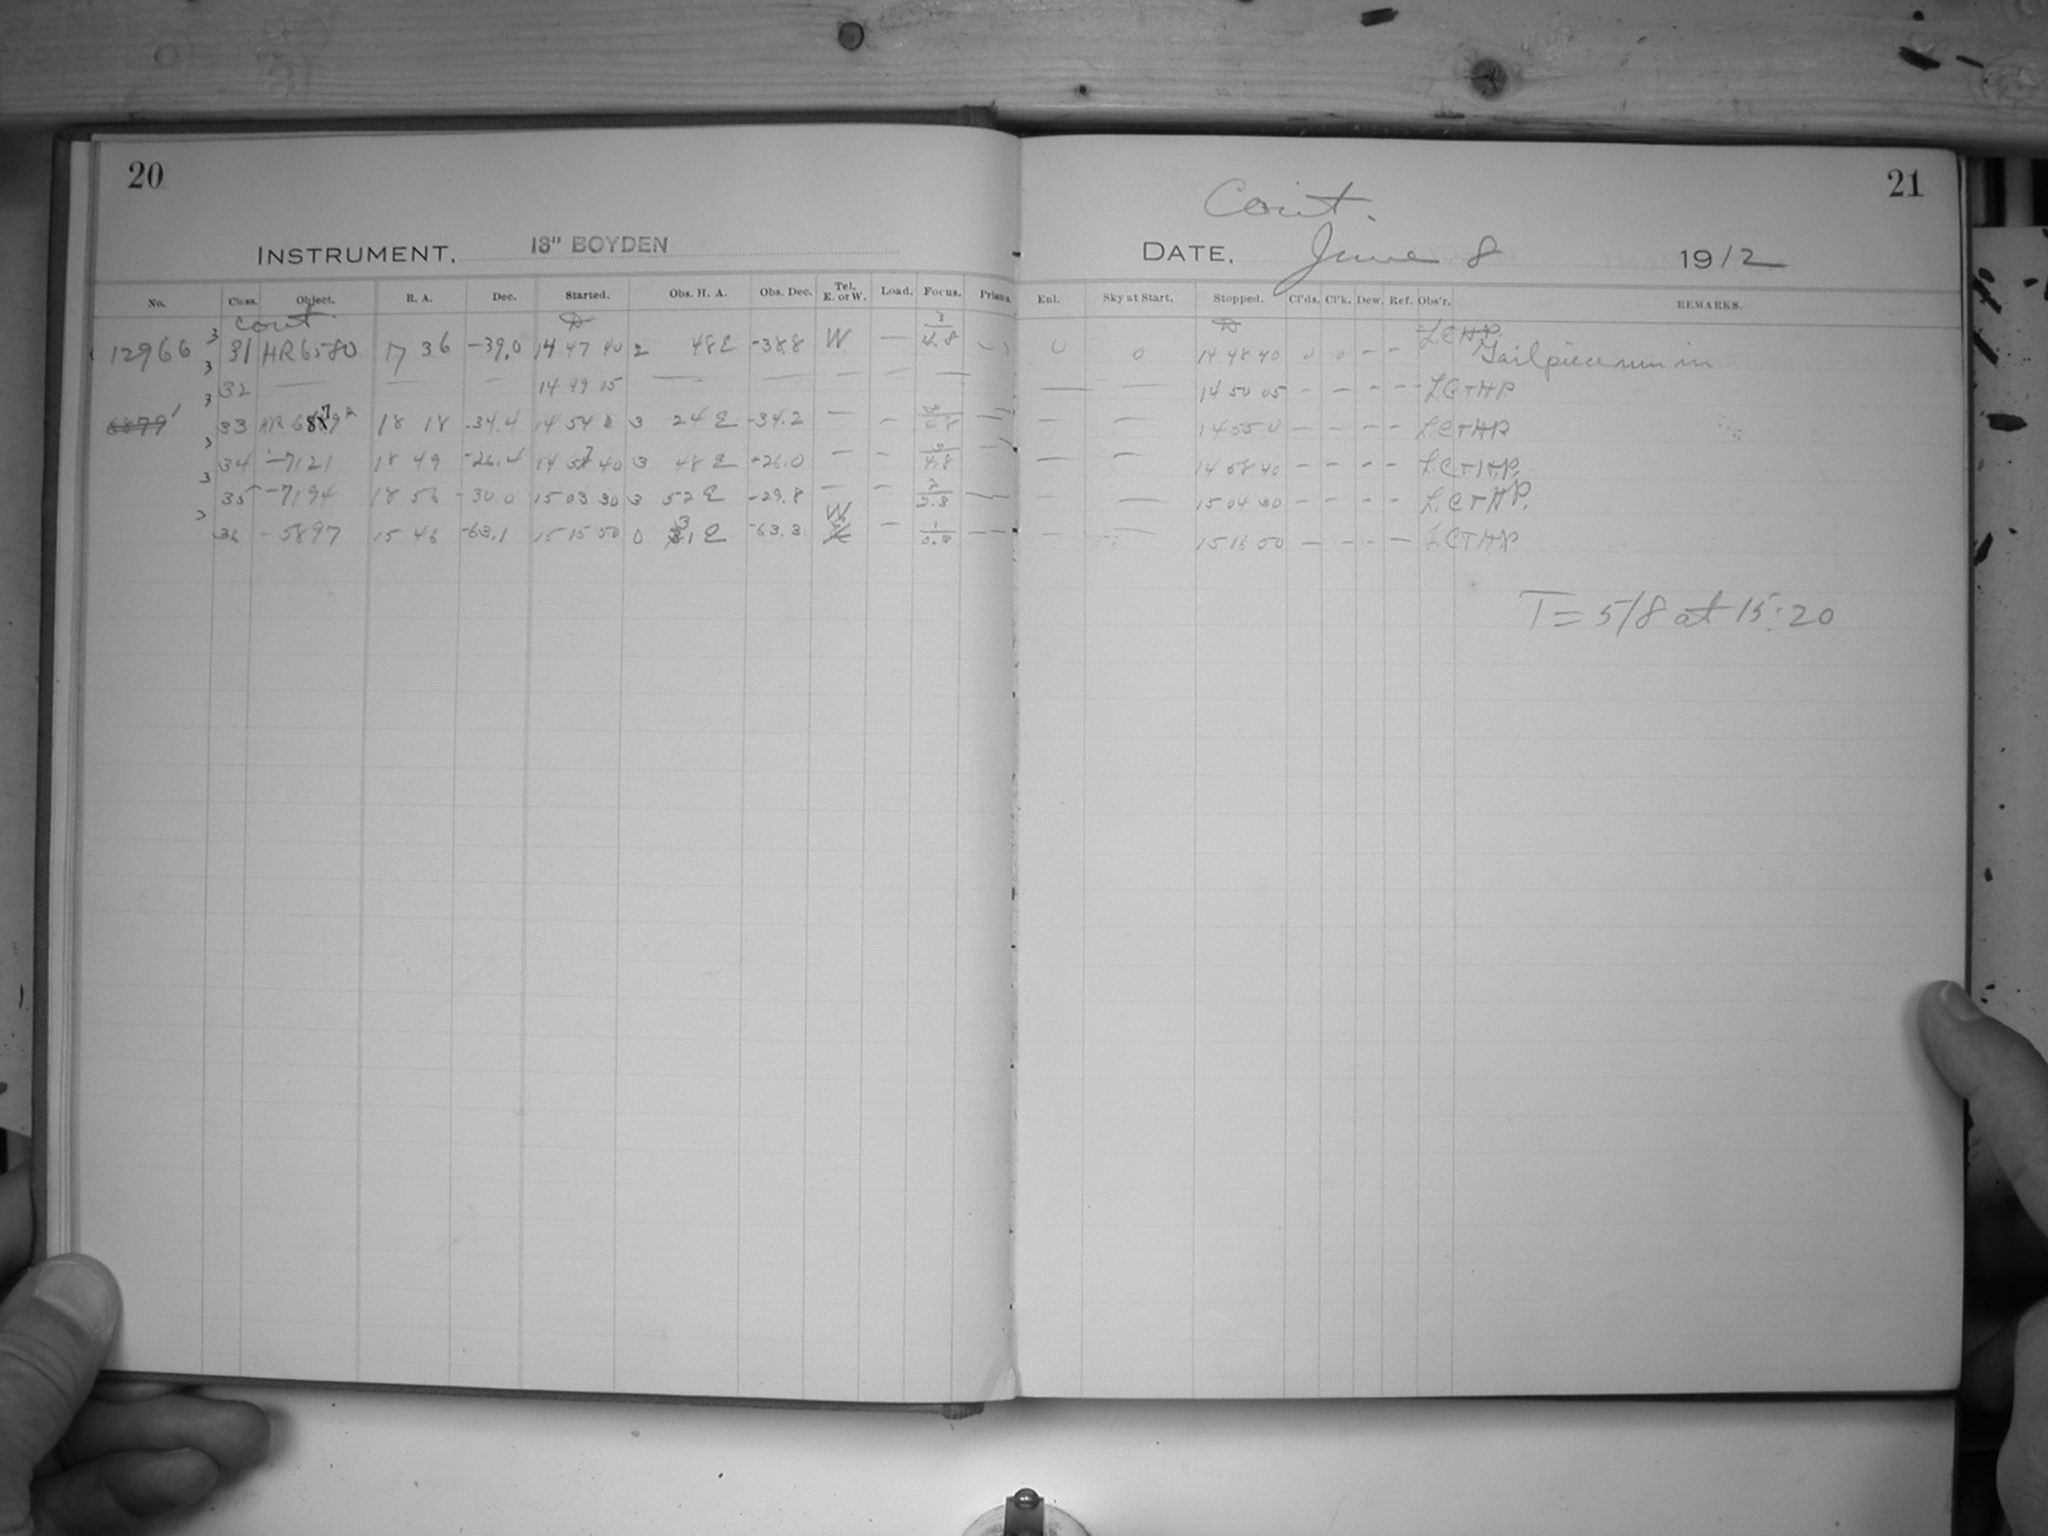 20
INSTRUMENT. 13" BOYDEN
No. Class. Object. R. A. Dec. Started. Obs. H. A. Obs. Dec. Tel. E. or W. Load. Focus. Prisms.
Cont.
12966 3 31 HR 6580 17 36 -39.0 14 47 40 2 48 E -38.8 W — 3/4.8
3 32 — — — 14 49 15 — — — — —
3 33 18 18 -34.4 14 54 0 3 24 E -34.2 — —
3 34 -7121 18 49 -26.4 14 57 40 3 48 E -26.0 — — 4.8
3 35 -7194 18 56 -30.0 15 03 30 3 52 E -29.8 — — —
3 36 -5897 15 46 -63.1 15 15 50 0 31 E -63.3 W — 1/0.8 —
21
Cont.
DATE. June 8 1912
Enl. Sky at Start. Stopped. Cl'ds. Cl'k. Dew. Ref. Obs'r. REMARKS.
0 0 14 48 40 0 0 - - Tailpiece run in
— — 14 50 05 - - - -
— — 14 55 0 - - - -
— — 14 58 40 - - - -
— 15 04 30 - - - -
— — 15 16 50 - - - -
T = 5/8 at 15:20